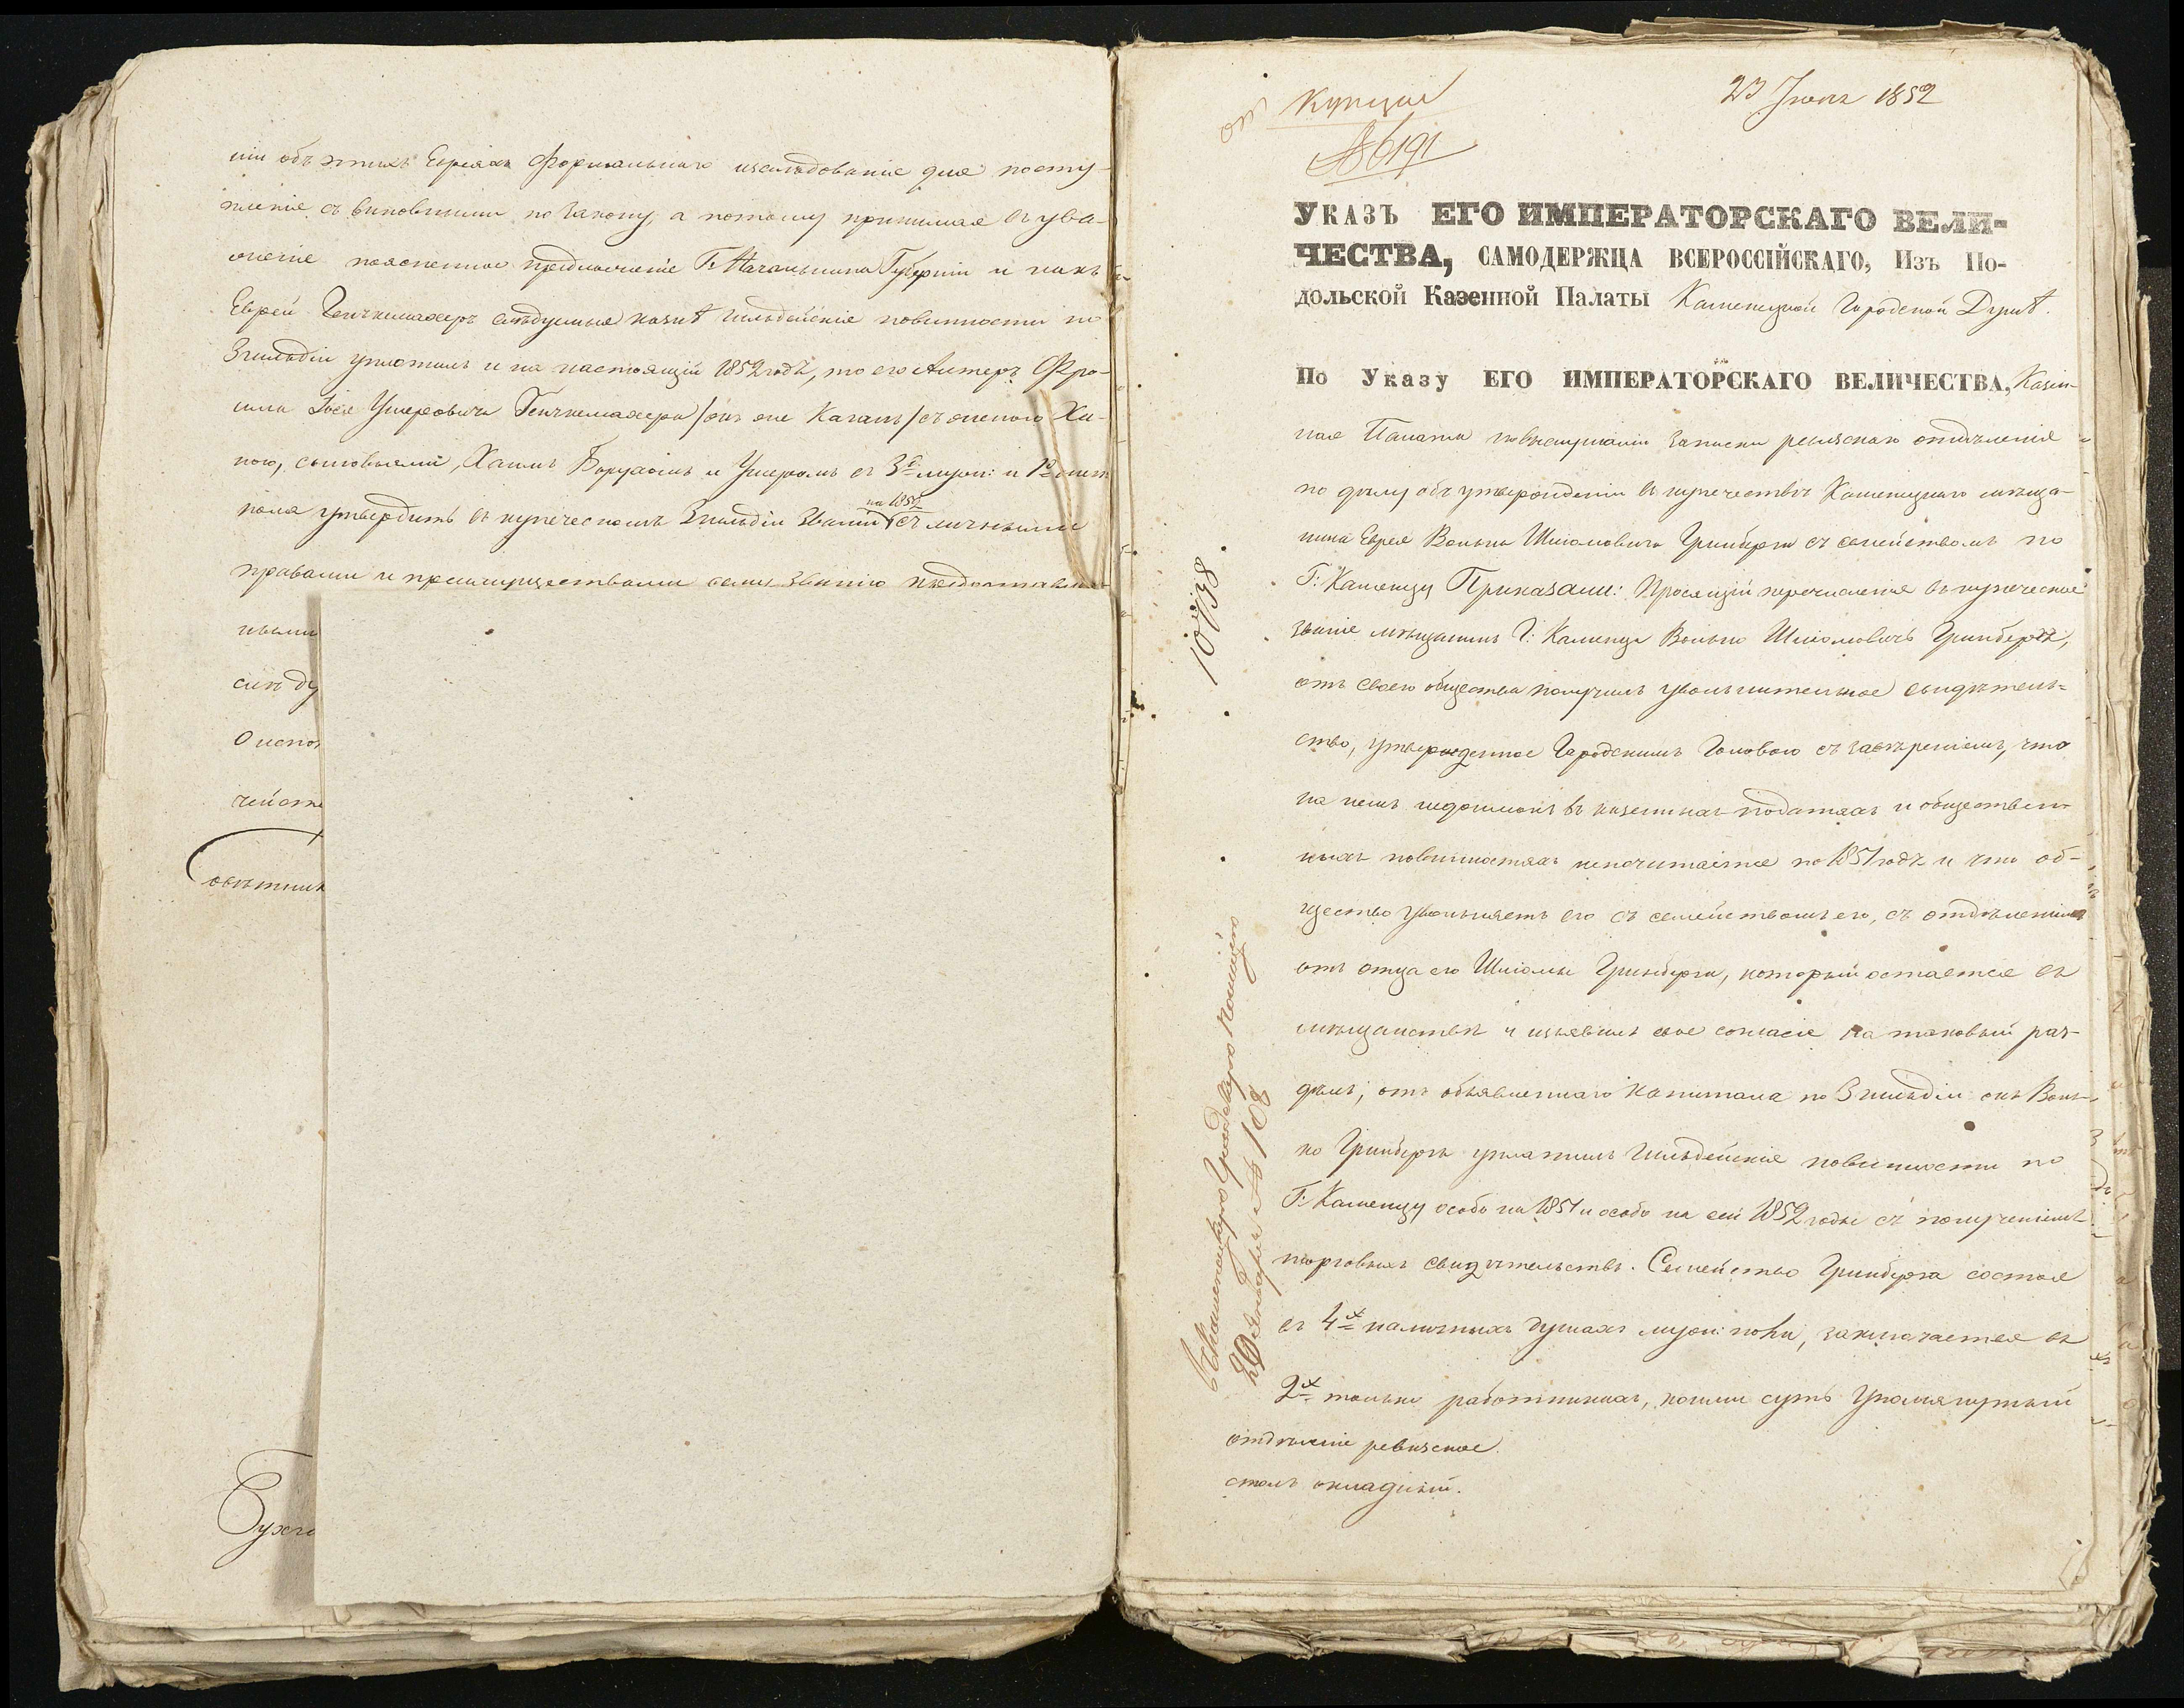 ніи объ этихъ Евреяхъ формальнаго изслѣдованіе для посту-
пленіе съ виновными по закону, а потому принимая въ ува-
женіе поясненное предложеніе Г. Начальника Губерніи и какъ
Еврей следуемые казнѣ гильдейскіе повинности по
3 гильдіи уплотилъ и на настоящій 1852 годъ, то его
Іося Ушеровича /онъ же Каганъ/ съ женою Ха-
ною, сыновьями, Хаимъ Борухомъ и Ушеромъ въ 3х муж: и 1й жен
пола утвердить въ купеческомъ 3 гильдіи званіи на 1852 съ личными
правами и преимуществами сему званію предоставлен-
ными
симъ Ду
О испол
чейств
Совѣтник
Бухга
отп Купцы
№ 6191
23 Іюня 1852
УКАЗЪ ЕГО ИМПЕРАТОРСКАГО ВЕЛИ-
ЧЕСТВА, САМОДЕРЖЦА ВСЕРОССІЙСКАГО, Изъ По-
дольской Казенной Палаты Каменецкой Городской Думѣ.
По Указу ЕГО ИМПЕРАТОРСКАГО ВЕЛИЧЕСТВА, Казен-
ная Палата по выслушаніи записки ревизскаго отдѣленія
по дѣлу объ утвержденіи въ купечество Каменецкаго мѣща-
нина Еврея Волька Шліомовича Гринберга съ семействомъ по
Г: Каменцу Приказали: Просящій перечисленія въ купеческое
званіе мѣщанинъ Г: Каменца Волько Шліомовичъ Гринбергъ,
отъ своего общества получилъ увольнительное свидѣтель-
ство, утвержденное Городскимъ Головою съ завѣреніемъ, что
на немъ недоимокъ въ казенныхъ податяхъ и обществен-
ныхъ повинностяхъ непочитается по 1851 годъ и что об-
щество увольняетъ его съ семействомъ его, съ отдѣленіемъ
отъ отца его Шліомы Гринберга, который остается въ
мѣщанствѣ и изъявилъ свое согласіе на таковый раз-
дѣлъ; отъ объявленнаго капитала по 3 гильдіи онъ Воль-
ко Гринбергъ уплатилъ гильдейскіе повинности по
Г: Каменцу особо на 1851 и особо на сей 1852 годы съ полученіемъ
торговыхъ свидѣтельствъ. Семейство Гринберга состоя
въ 4х наличныхъ душахъ муж: пола, заключается въ
2х только работникахъ, коими суть упомянутый
отдѣленіе ревизское.
столъ окладный.
10738
20 Января № 108